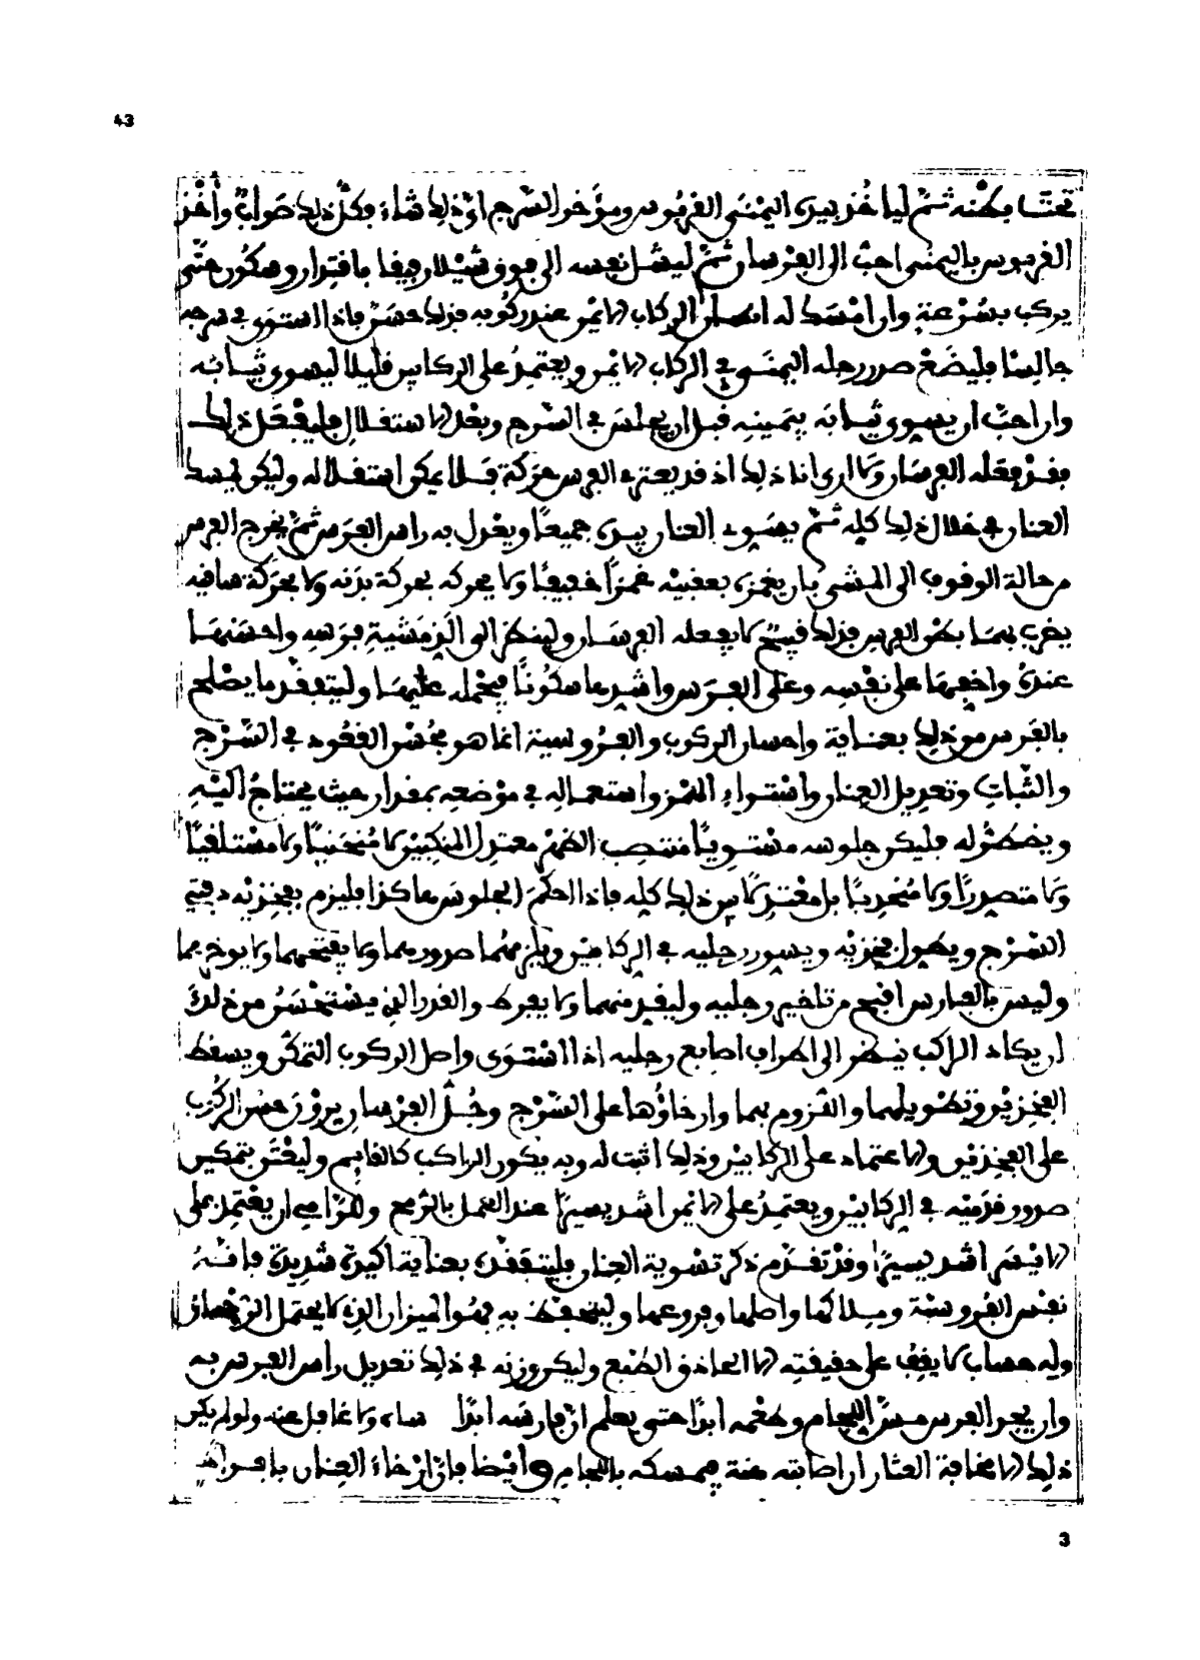 43
تحتها بطنه ثم ليأخذ بيده اليمنى القربوس ومؤخر السرج أي ذلك شاء فكل ذلك صواب وأخذ
القربوس باليمنى أحب إلى الفرسان ثم ليشل نفسه إلى فوق شيلا رفيقا باقتدار وسكون حتى
يركب بسرعة وان امسك له الركاب الأيمن عند ركوبه فذلك حسن فاذا استوى في سرجه
جالسا فليضع صدر رجله اليمنى في الركاب الأيمن ويعتمد على الركابين قليلا ليسوي ثيابه
وان احب ان يسوي ثيابه بيمينه قبل ان يجلس في السرج وبعد الاستقلال فليفعل ذلك
فقد فعله الفرسان ولا ارى انا ذلك اذ قد يعتري الفرس حركة فلا يمكن استقلاله وليكن يمسك
العنان في خلال ذلك كله ثم يسوي العنان بيده جميعا ويعدل به راس الفرس ثم يخرج الفرس
من حالة الوقوف الى المشي بان يغمزه بعقبيه غمزا خفيفا ولا يحركه بحركة بدنه ولا بحركة ساقيه
يضرب بهما بطن الفرس فذلك قبيح لا يفعله الفرسان ولينظر الى الذ مشية فرسه واحسنها
عنده واخفها على نفسه وعلى الفرس واشدها سكونا فيحمله عليها وليتفقد ما يصلح
بالفرس من ذلك بعناية واحسان الركوب والفروسية انما هو بحسن القعود في السرج
والثبات وتعديل العنان واستواء الغمز واستعماله في موضعه بمقدار حيث يحتاج اليه
ويضطر له فليكن جلوسه مستويا منتصب الظهر معتدل المنكبين لا منحنيا ولا مستلقيا
ولا متصدرا ولا منحدبا بل معتدلا بين ذلك كله فاذا احكم الجلوس هاكذا فليزم بفخذيه دفتي
السرج ويطول فخذيه ويسوي رجليه في الركابين ويلزمهما صدورهما ولا يفتحهما ولا يوخرهما
وليس بالفارس اقبح من تاخير رجليه وليقدمهما ولا يفرط والقدر الذي يستحسن من ذلك
ان يكاد الراكب ينظر الى اطراف اصابع رجليه اذا استوى واصل الركوب التمكن وبسط
الفخذين وتطويلهما واللزوم بهما وارخاؤها على السرج وجل الفرسان يرون حسن الركوب
على الفخذين والاعتماد على الركابين وذلك اثبت له وبه يكون الراكب كالقايم وليعتن بتمكين
صدور قدميه في الركابين ويعتمد على الايمن اشد يسيرا عند العمل بالرمح وللرامي ان يعتمد على
الايسر اشد يسيرا وقد تقدم ذكر تسوية العنان فليتفقده بعناية اكيدة شديدة فانه
نفس الفروسية وملاكها واصلها وفروعها وليتحفظ به فهو الميزان الذي لا يحتمل الرجحان
وله حساب لا يقف على حقيقته الا الحاذق الطبع وليكن وزنه في ذلك تعديل راس الفرس به
وان يجد الفرس مس اللجام وطعمه ابدا حتى يعلم ان فارسه ابدا ساه ولا غافل عنه ولو لم يكن
ذلك الا مخافة العثار ان اصابته هنة فيمسكه باللجام وايضا فان ارخاء العنان بافراط
3